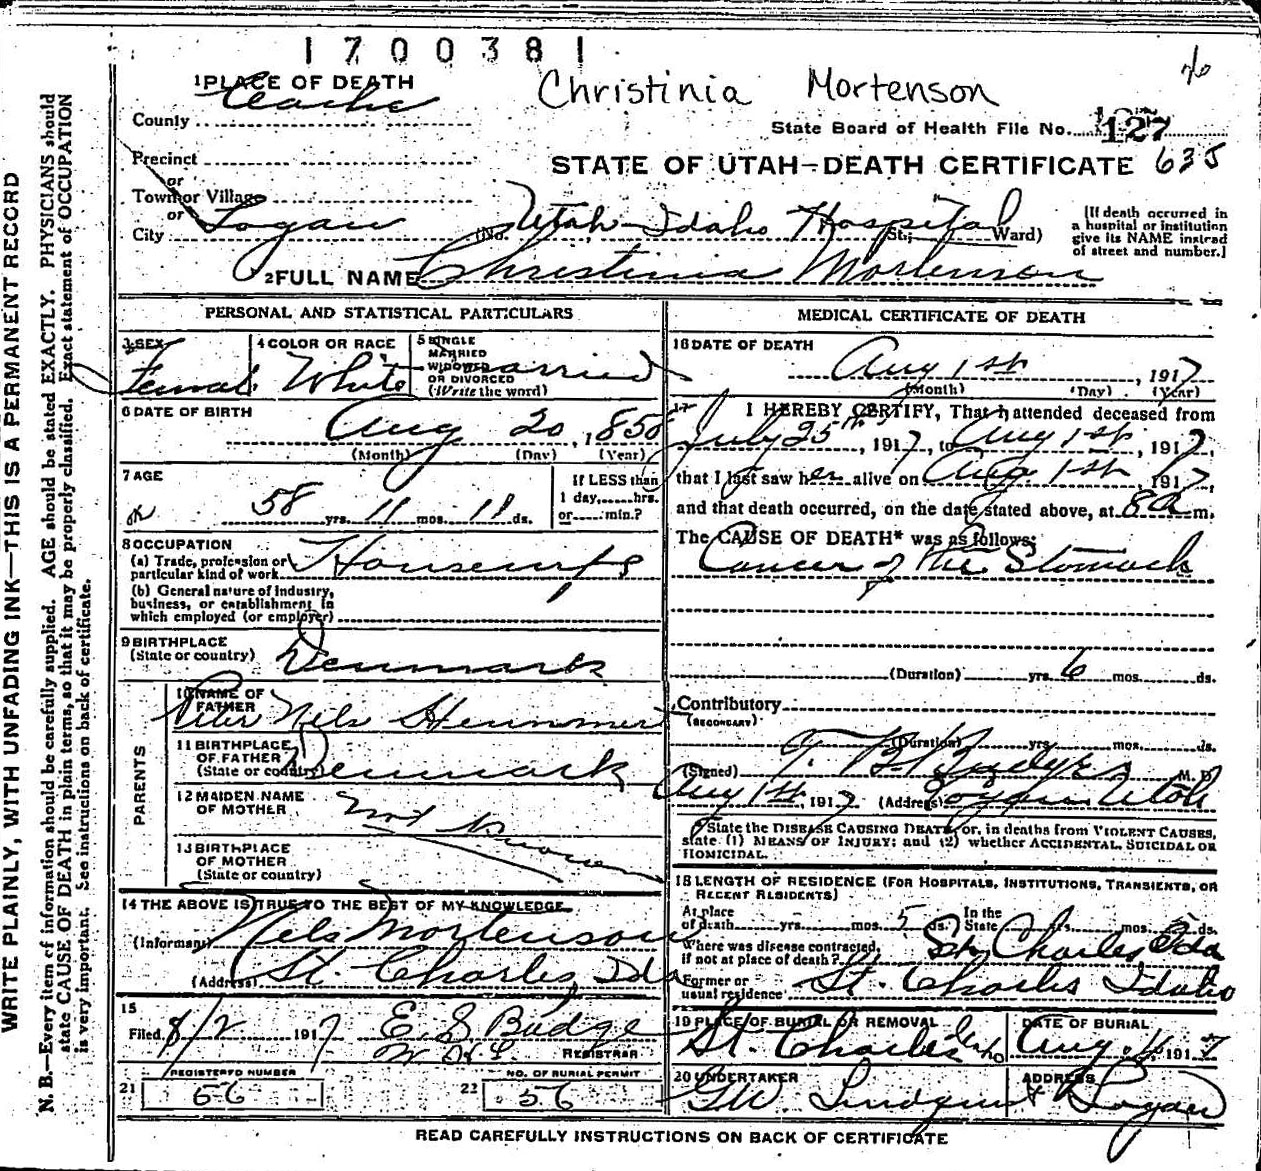 1700381
Christinia Mortenson
1 PLACE OF DEATH
Cache
County
State Board of Health File No. 127
635
Precinct
or
Town or Village
or
STATE OF UTAH—DEATH CERTIFICATE
City Logan (No. Utah-Idaho Hospital St.; Ward)
[If death occurred in
a hospital or institution
give its NAME instead
of street and number.]
2 FULL NAME Christinia Mortenson
PERSONAL AND STATISTICAL PARTICULARS
3 SEX
Female
4 COLOR OR RACE
White
5 SINGLE
MARRIED
WIDOWED
OR DIVORCED
(Write the word)
Married
6 DATE OF BIRTH
Aug 20, 1858
(Month) (Day) (Year)
7 AGE
58 yrs. 11 mos. 11 ds.
If LESS than
1 day, hrs.
or min.?
8 OCCUPATION
(a) Trade, profession or
particular kind of work Housewife
(b) General nature of industry,
business, or establishment in
which employed (or employer)
9 BIRTHPLACE
(State or country) Denmark
PARENTS
10 NAME OF
FATHER
Peter Nils
11 BIRTHPLACE
OF FATHER
(State or country) Denmark
12 MAIDEN NAME
OF MOTHER
Not Known
13 BIRTHPLACE
OF MOTHER
(State or country)
14 THE ABOVE IS TRUE TO THE BEST OF MY KNOWLEDGE
(Informant) Nels Mortenson
(Address) St. Charles, Ida
15
Filed 8/2 1917 E S Budge
REGISTRAR
REGISTERED NUMBER
21 56
NO. OF BURIAL PERMIT
22 56
MEDICAL CERTIFICATE OF DEATH
16 DATE OF DEATH
Aug 1st, 1917
(Month) (Day) (Year)
17 I HEREBY CERTIFY, That I attended deceased from
July 25th, 1917, to Aug 1st, 1917,
that I last saw her alive on Aug. 1st, 1917,
and that death occurred, on the date stated above, at 8 a m.
The CAUSE OF DEATH* was as follows:
Cancer of the Stomach
(Duration) yrs. 6 mos. ds.
Contributory
(SECONDARY)
(Duration) yrs. mos. ds.
(Signed) T. B. Budge M. D.
Aug 1st, 1917 (Address) Logan Utah
*State the DISEASE CAUSING DEATH, or, in deaths from VIOLENT CAUSES,
state (1) MEANS OF INJURY; and (2) whether ACCIDENTAL, SUICIDAL OR
HOMICIDAL.
18 LENGTH OF RESIDENCE (FOR HOSPITALS, INSTITUTIONS, TRANSIENTS, OR
RECENT RESIDENTS)
At place
of death yrs. mos. 5 ds. In the
State yrs. mos. 5 ds.
Where was disease contracted,
if not at place of death? St. Charles, Ida
Former or
usual residence St. Charles Idaho
19 PLACE OF BURIAL OR REMOVAL
St. Charles Idaho
DATE OF BURIAL
Aug. 4 1917
20 UNDERTAKER
G.W. Lindquist
ADDRESS
Logan
READ CAREFULLY INSTRUCTIONS ON BACK OF CERTIFICATE
WRITE PLAINLY, WITH UNFADING INK—THIS IS A PERMANENT RECORD
N. B.—Every item of information should be carefully supplied. AGE should be stated EXACTLY. PHYSICIANS should
state CAUSE OF DEATH in plain terms, so that it may be properly classified. Exact statement of OCCUPATION
is very important. See instructions on back of certificate.